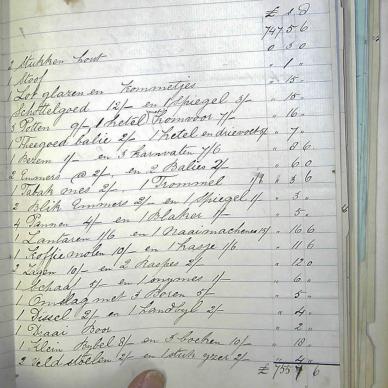 £ s d
747 5 6
2 Stukken hout 0 5 0
Stoof " 1 "
Lot glazen en kommetjes " 15 "
Schottelgoed 12/- en 1 Spiegel 3/- " 15 "
3 Potten 9/- 1 ketel komvoor 7/- " 16 "
1 Theegoed balie 2/- 1 ketel en drievoet " 7 "
1 Bezem 1/- en 3 karnvaten 7/6 " 8 6
2 Emmers @ 2/- en 2 Balies 2/- " 6 0
1 Tabak mes 2/- 1 Trommel " 3 6
2 Blik Emmers 2/- en 1 Spiegel 1/- " 3 "
4 Pannen 4/- en 1 Blaker 1/- " 5 "
1 Lantaren 1/6 en 1 Naaimachene 15/- " 16 6
1 Koffie molen 10/- en 1 kasje 1/6 " 11 6
2 Zagen 10/- en 2 Raspes 2/- " 12 0
1 Schaaf 5/- en 1 1/- " 6 "
1 Omslag met 3 Boren 5/- " 5 "
1 Dissel 2/- en 1 Handbyl 2/- " 4 "
1 Draai Boor " 2 "
1 Klein Bybel 8/- en 3 boeken 10/- " 18 "
2 Veldstoelen 2/- en 1 stuk yzer 2/- " 4 "
£ 755 6